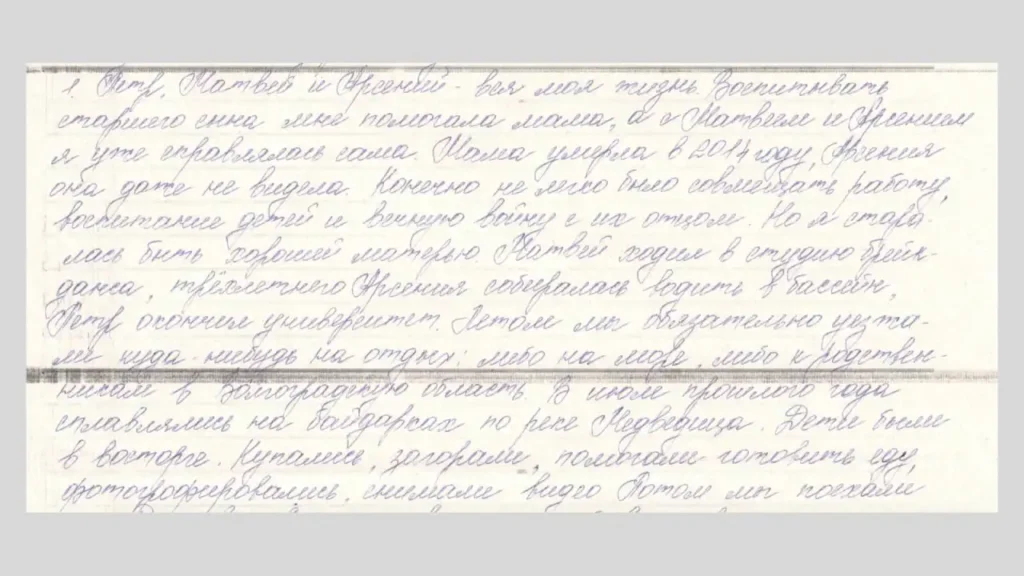 я. Петр, Матвей и Арсений - вся моя жизнь. Воспитывать
старшего сына мне помогала мама, а с Матвеем и Арсением
я уже справлялась сама. Мама умерла в 2014 году, Арсения
она даже не видела. Конечно не легко было совмещать работу,
воспитание детей и вечную войну с их отцом. Но я стара-
лась быть хорошей матерью. Матвей ходил в студию брейк-
данса, трёхлетнего Арсения собиралась водить в бассейн,
Петр окончил университет. Летом мы обязательно уезжа-
ли куда-нибудь на отдых: либо на море, либо к родствен-
никам в Волгоградскую область. В июле прошлого года
сплавлялись на байдарках по реке Медведица. Дети были
в восторге. Купались, загорали, помогали готовить еду,
фотографировались, снимали видео. Потом мы поехали